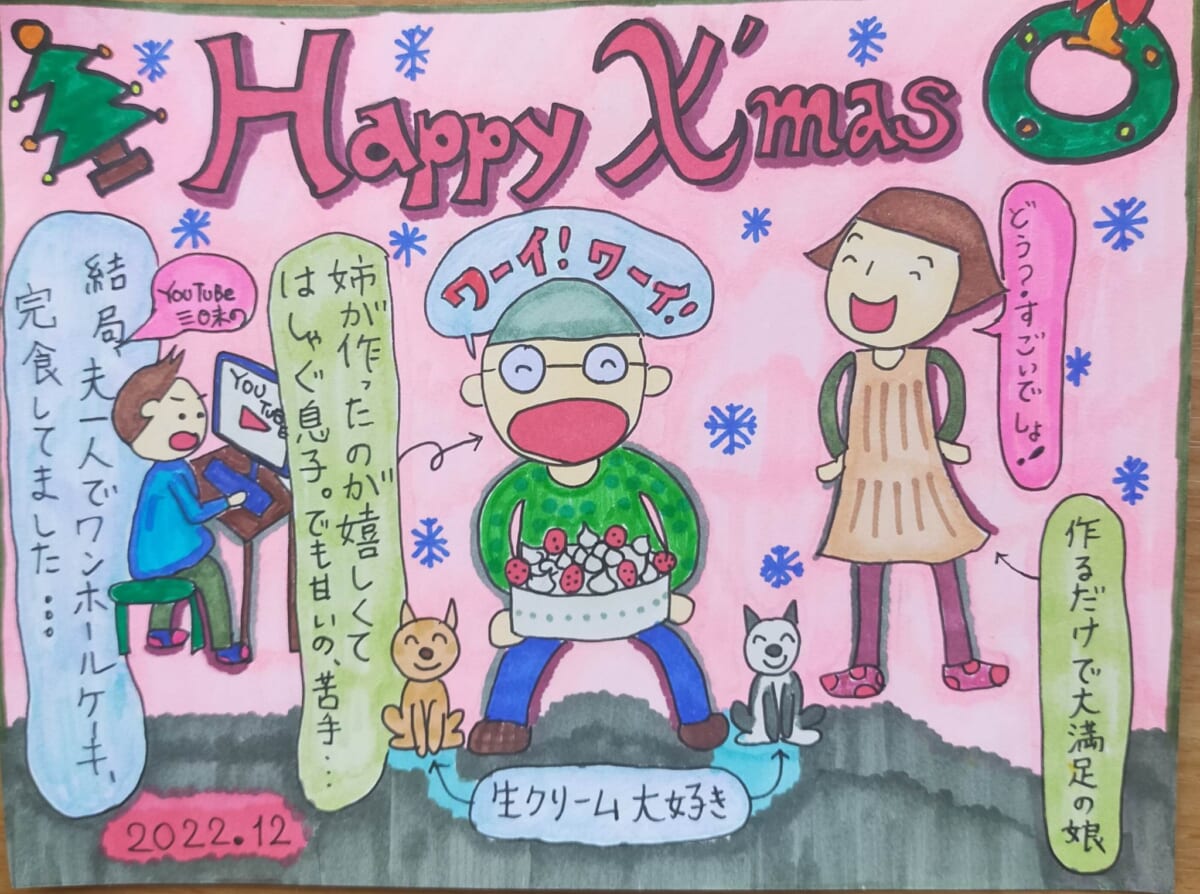 Happy X'mas
結局、夫一人でワンホールケーキ、
完食してました…。
YouTube
三日末の
YOU
TUBE
姉が作ったのが嬉しくて
はしゃぐ息子。でも甘いの、苦手…
ワーイ！ワーイ！
どう？すごいでしょ！！
作るだけで大満足の娘
生クリーム大好き
2022.12